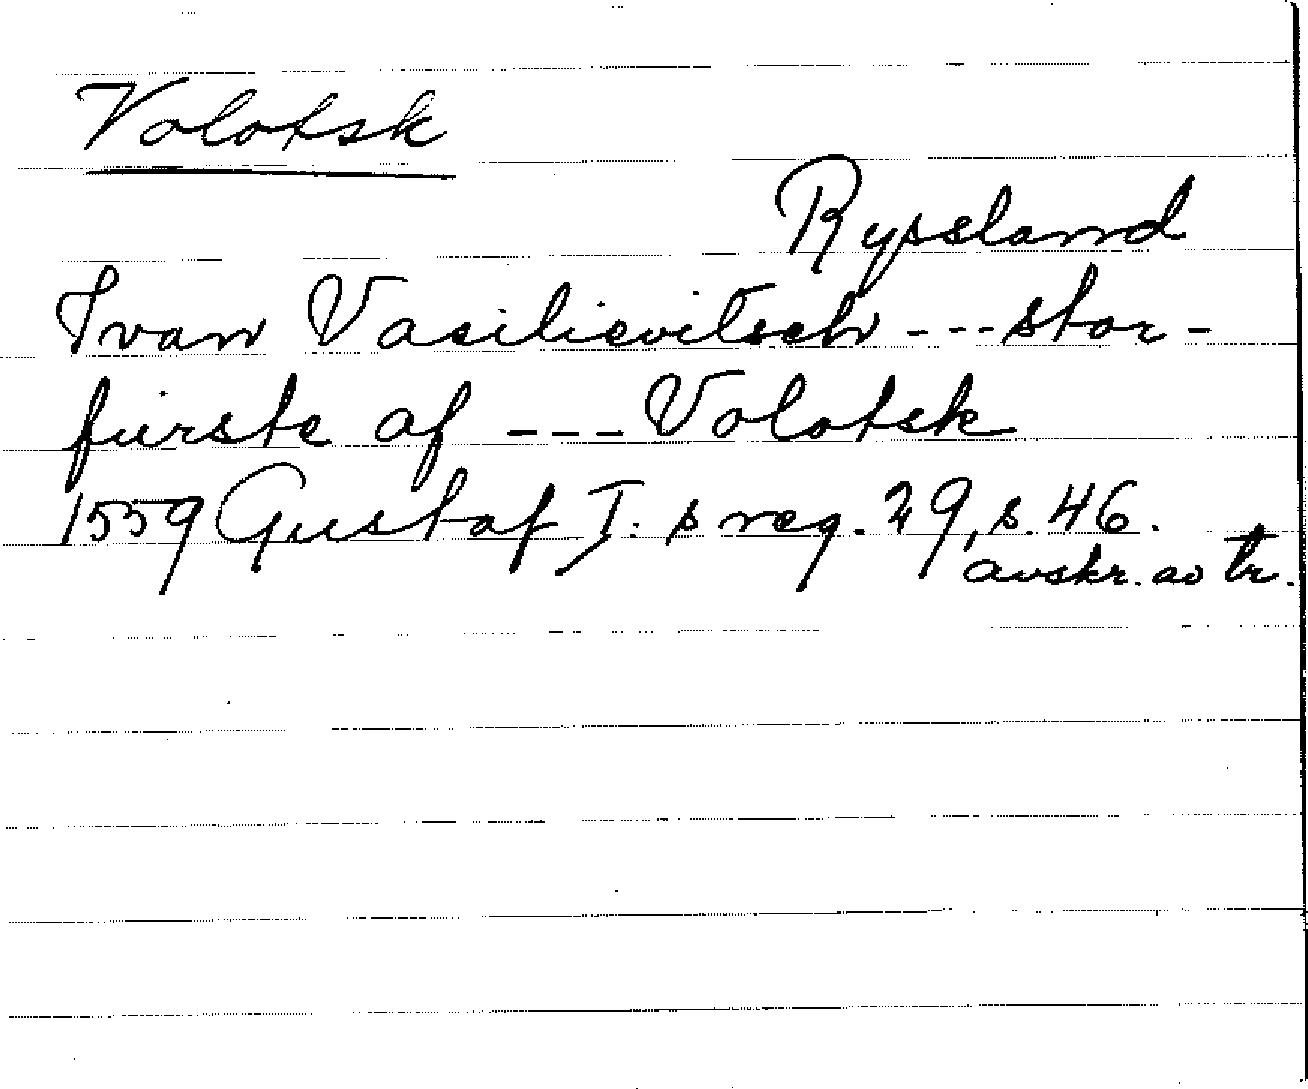 Volotsk
Ryssland
Ivan Vasilievitsch --- stor-
furste af --- Volotsk
1559 Gustaf I:s reg. 29, s. 46.
avskr. av tr.